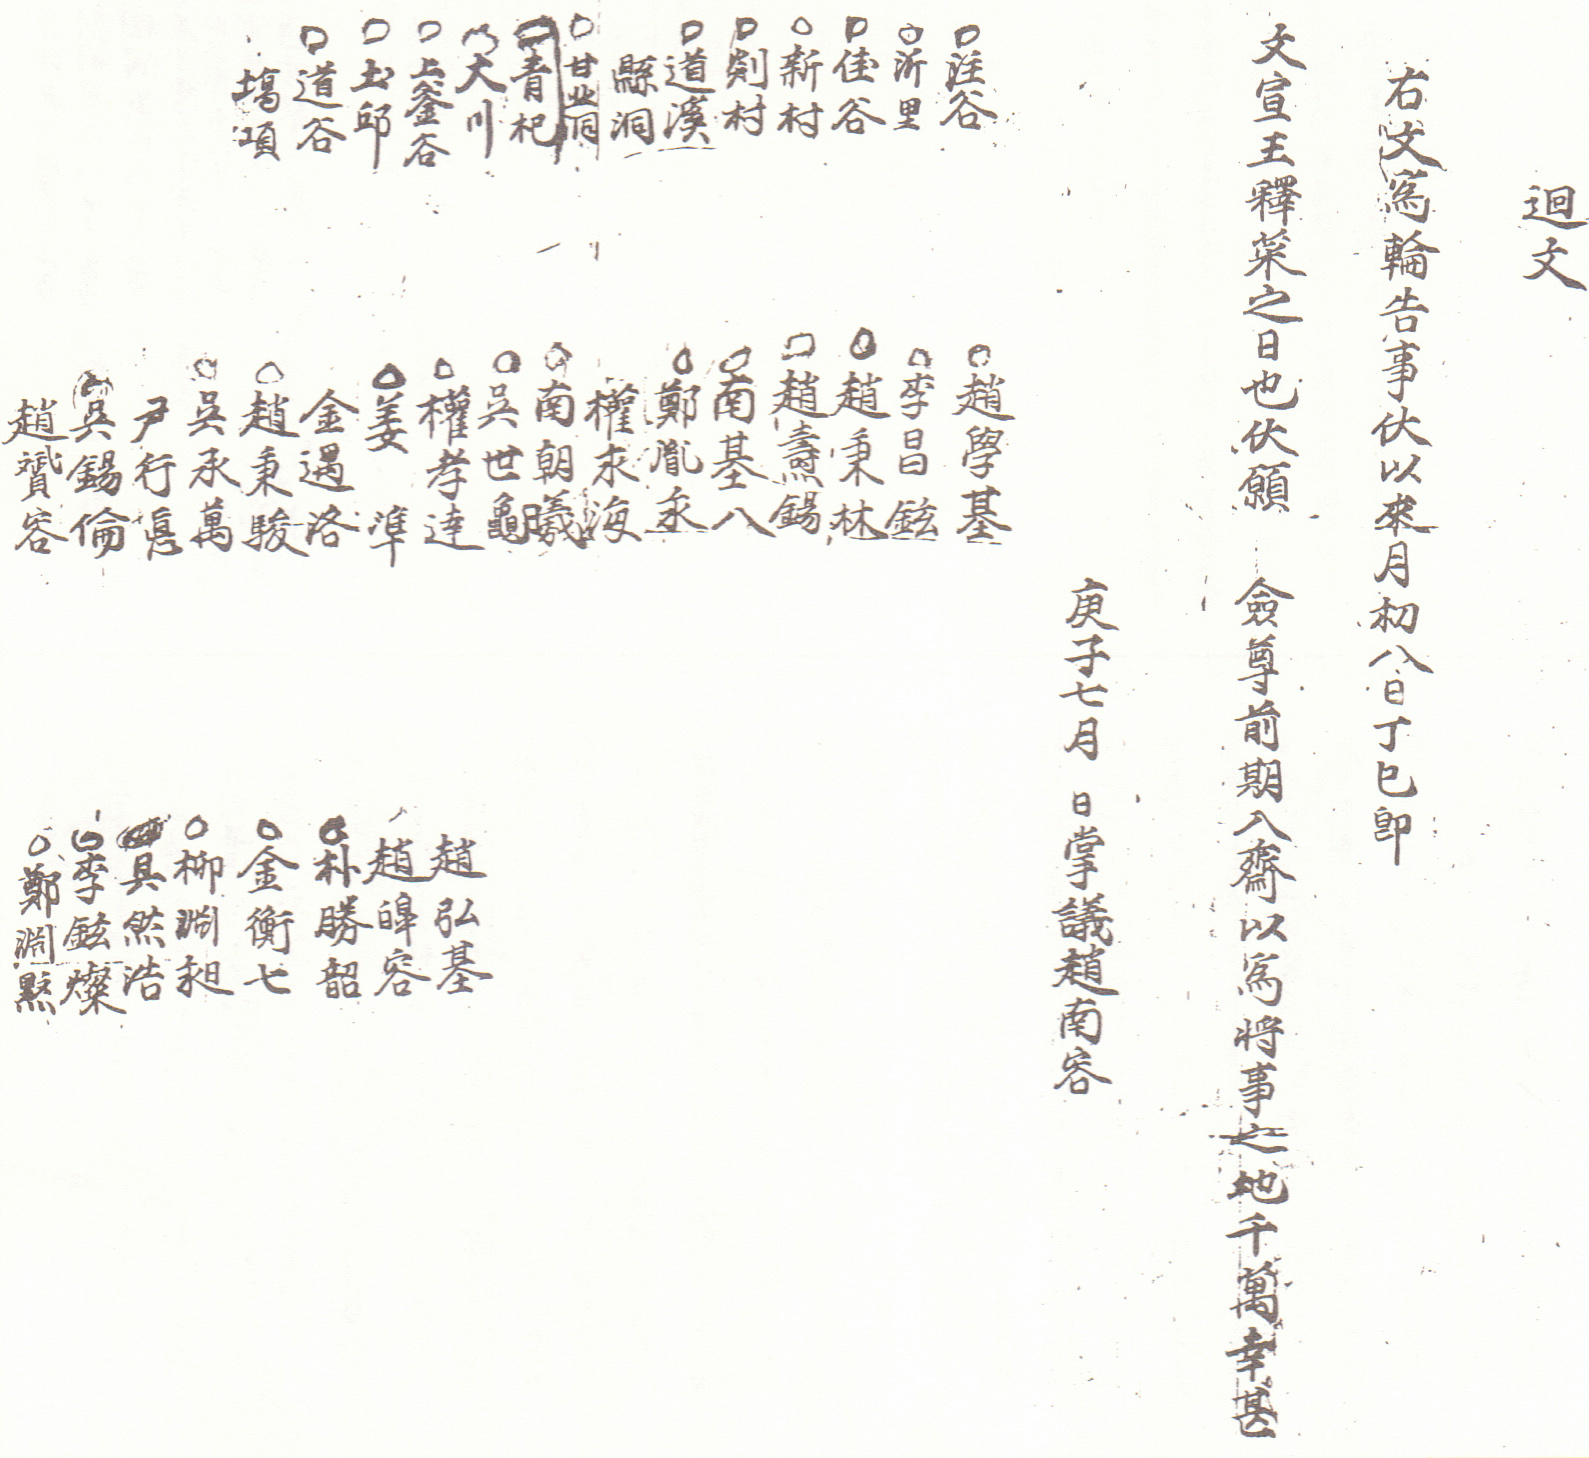 迴文
右文爲輪告事伏以來月初八日丁巳卽
文宣王釋菜之日也伏願 僉尊前期入齋以爲將事之地千萬幸甚
庚子七月 日掌議趙南容
注谷
沂里
佳谷
新村
剡村
道溪
縣洞
甘川洞
青杞
大川
上釜谷
玉邱
道谷
塢項
趙學基
李昌鉉
趙秉林
趙壽錫
南基八
鄭胤永
權永海
南朝曦
吳世龜
權孝達
姜準
金遇洛
趙秉駿
吳承萬
尹行
吳錫倫
趙贇容
趙弘基
趙皥容
朴勝韶
金衡七
柳淵昶
具然浩
李鉉燦
鄭淵黙